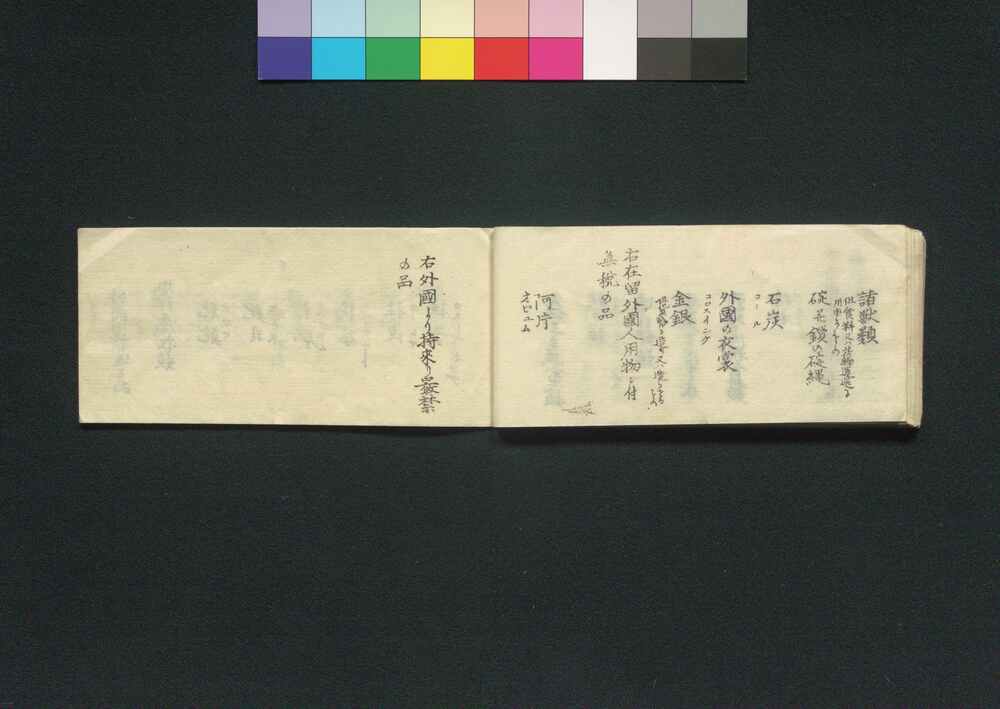 諸獣類
但食料又ハ荷物運送ニ
用ゆるもの
碇並鎖の碇縄
石炭
コール
外國の衣裳
コロスイング
金銀
右在留外國人用物ニ付
無税の品
阿片
オピユム
右外國より持来り嚴禁
の品